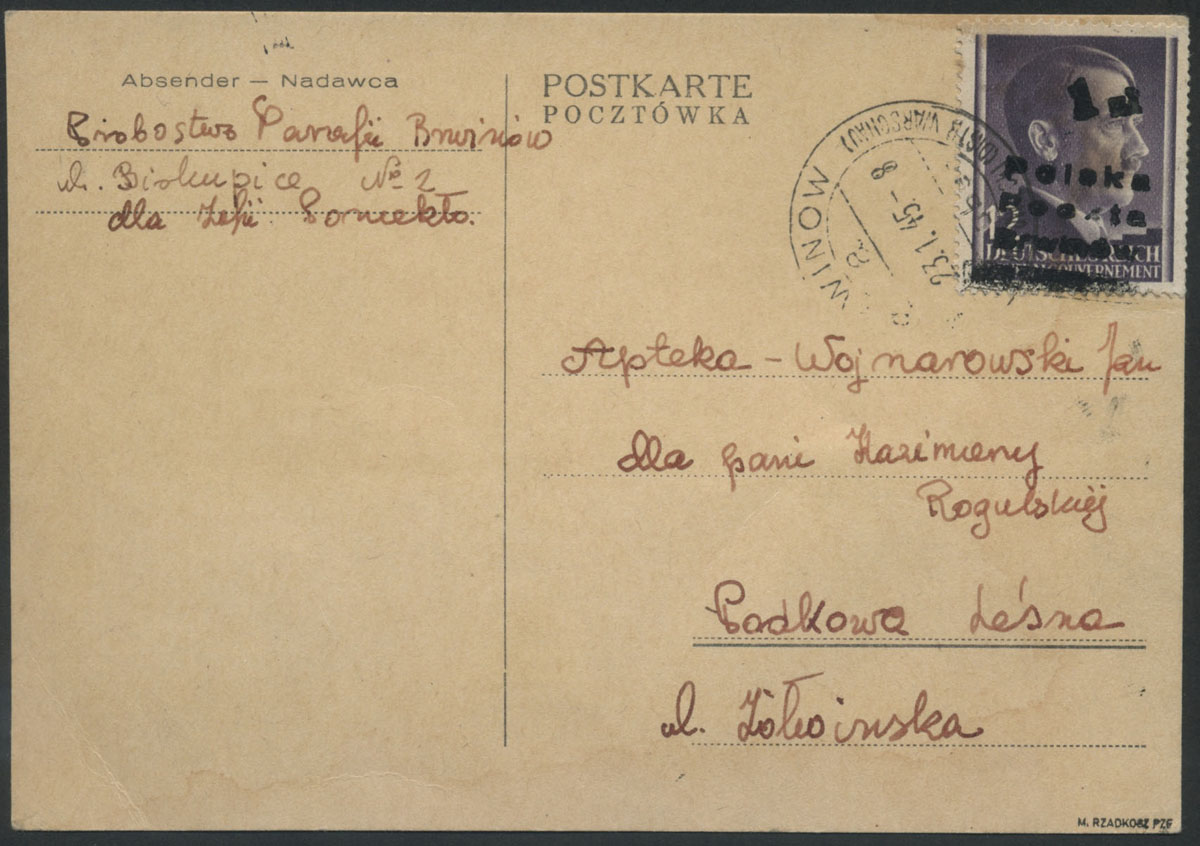 Absender — Nadawca
Probostwo Parafii Brwinów
ul. Biskupice № 2
dla Zofii
POSTKARTE
POCZTÓWKA
WINOW
(DISTR. WARSCHAU)
23.1.45-8
1 zł
Polska
Poczta
Brwinów
12
DEUTSCHES REICH
GENERALGOUVERNEMENT
Apteka - Wojnarowski Jan
dla pani Kazimiery
Rogulskiéj
Podkowa Leśna
ul. Żółwińska
M. RZADKOSZ PZF